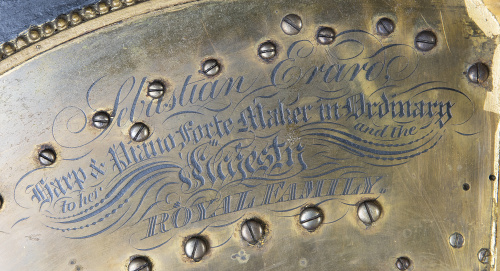 Sebastian Erard,
Harp & Piano Forte Maker in Ordinary
to her Majesty and the
ROYAL FAMILY.